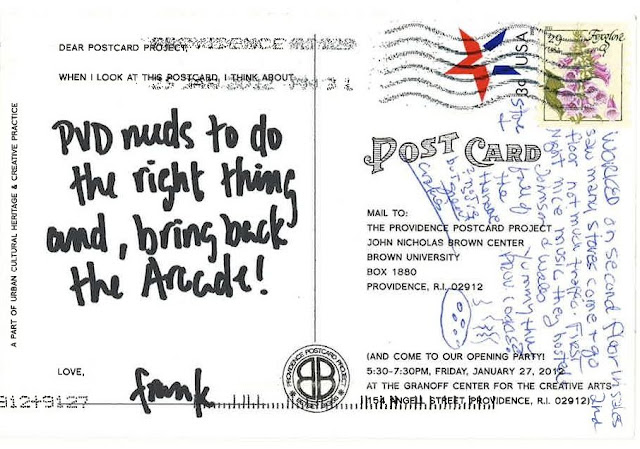 PROVIDENCE
27 JAN 2012 PM 3 L
DEAR POSTCARD PROJECT,
WHEN I LOOK AT THIS POSTCARD, I THINK ABOUT
PVD needs to do
the right thing
and, bring back
the Arcade!
LOVE,
frank
A PART OF URBAN CULTURAL HERITAGE & CREATIVE PRACTICE
91249127
USA
29
Foxglove
USA
POST CARD
MAIL TO:
THE PROVIDENCE POSTCARD PROJECT
JOHN NICHOLAS BROWN CENTER
BROWN UNIVERSITY
BOX 1880
PROVIDENCE, R.I. 02912
(AND COME TO OUR OPENING PARTY!
5:30-7:30PM, FRIDAY, JANUARY 27, 2012
AT THE GRANOFF CENTER FOR THE CREATIVE ARTS
(154 ANGELL STREET, PROVIDENCE, R.I. 02912)
PROVIDENCE POSTCARD PROJECT
WORKED on second floor in sales
saw many stores come + go 2nd
floor not much traffic. First
Night nice music they hosted
Yummy
cookies
I